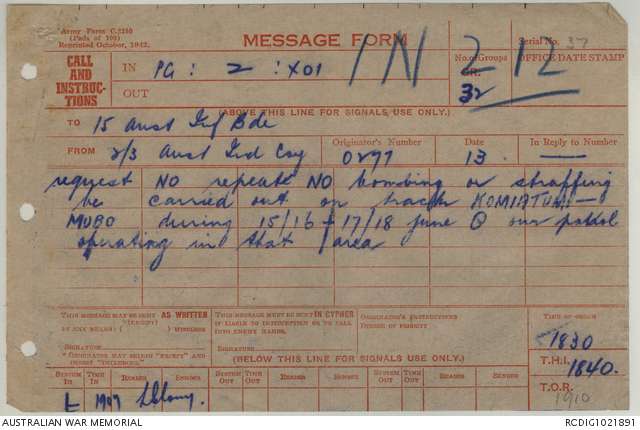 Army Form C.2150
(Pads of 100)
Reprinted October, 1942.
MESSAGE FORM
Serial No. 37
CALL AND INSTRUCTIONS
IN PG : 2 : X01
OUT
IN 212
No. of Groups
GR.
32
OFFICE DATE STAMP
(ABOVE THIS LINE FOR SIGNALS USE ONLY.)
TO 15 Aust Inf Bde
FROM 2/3 Aust Ind Coy
Originator's Number 0297
Date 13
In Reply to Number —
request NO repeate NO bombing or straffing
be carried out on track KOMIATUM —
MUBO during 15/16 - 17/18 June @ our patrol
operating in that area
THIS MESSAGE MAY BE SENT AS WRITTEN
(EXCEPT)
BY ANY MEANS ( ) WIRELESS
SIGNATURE
THIS MESSAGE MUST BE SENT IN CYPHER
IF LIABLE TO INTERCEPTION OR TO FALL
INTO ENEMY HANDS.
SIGNATURE
ORIGINATOR'S INSTRUCTIONS
DEGREE OF PRIORITY
TIME OF ORIGIN
1830
T.H.I.
1840.
T.O.R.
1910
(BELOW THIS LINE FOR SIGNALS USE ONLY.)
SYSTEM IN TIME IN READER SENDER SYSTEM OUT TIME OUT READER SENDER SYSTEM OUT TIME OUT READER SENDER
1907
AUSTRALIAN WAR MEMORIAL
RCDIG1021891